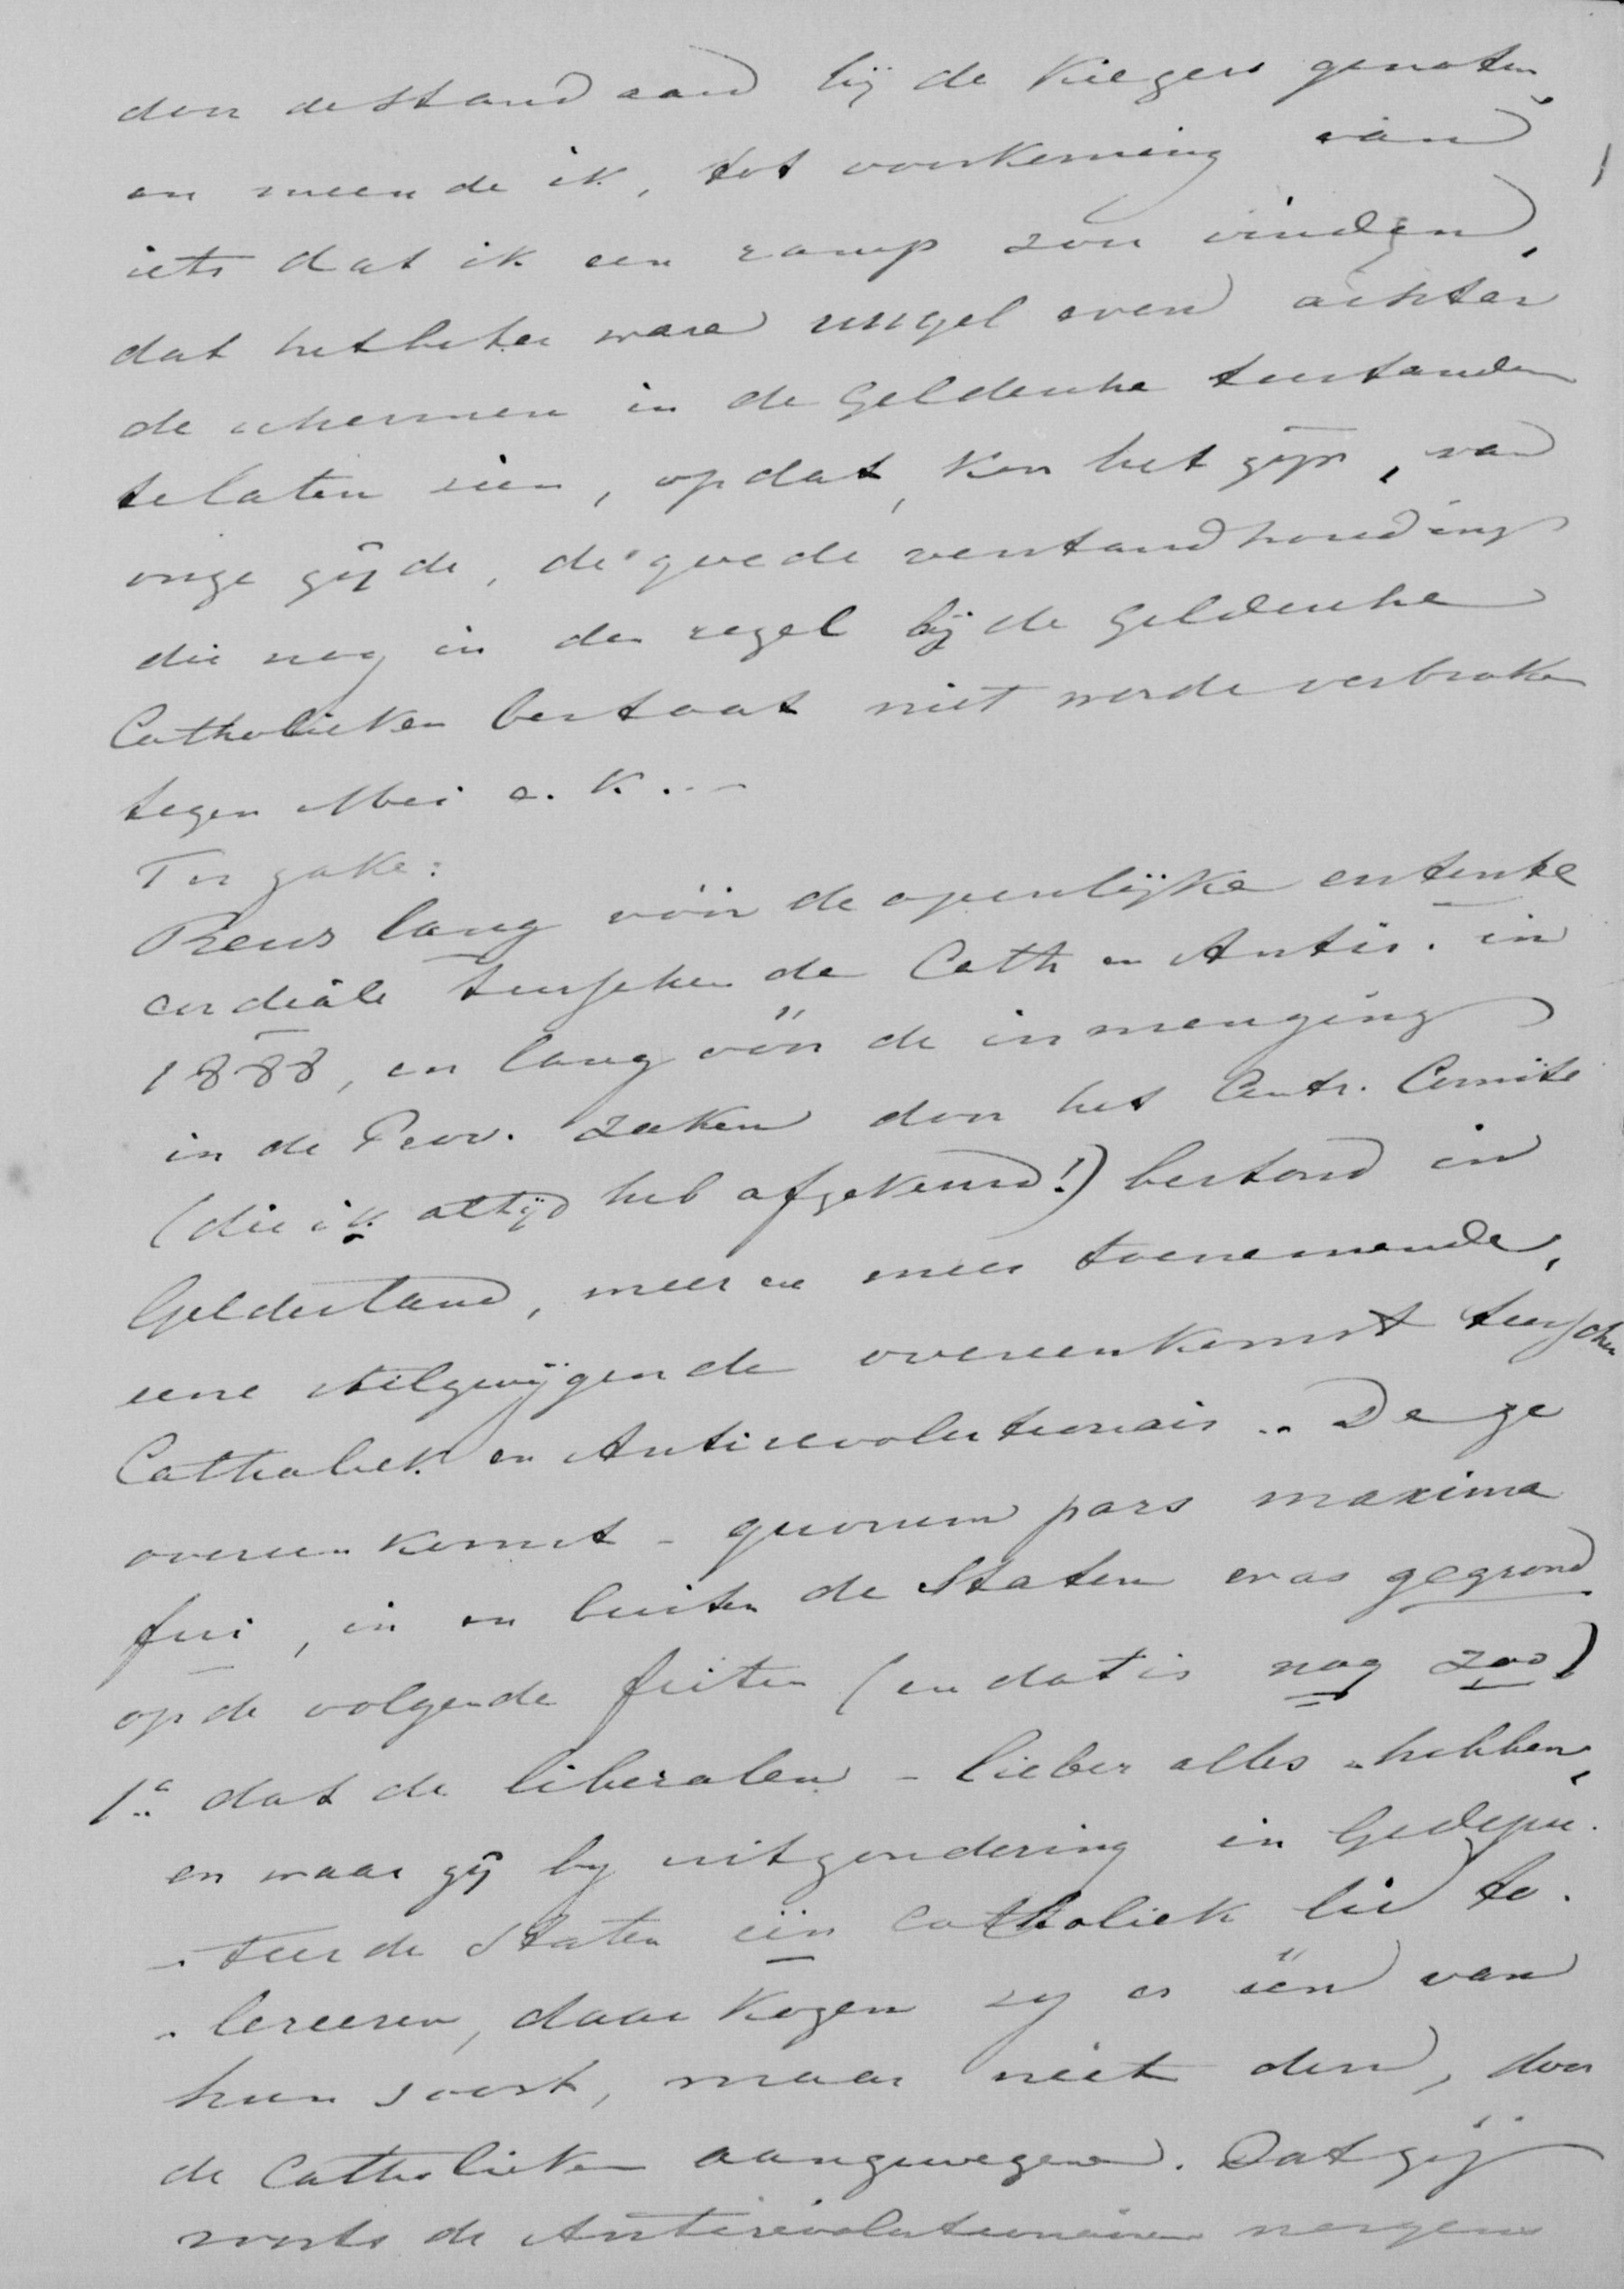 door de Standaard bij de Kiezers genoten,
en meende ik, tot voorkoming van
iets dat ik een ramp zou vinden,
dat het beter ware UHgel even achter
de schermen in de Geldersche toestanden
te laten zien, opdat, kon het zijn, van
onze zijde, de goede verstandhouding
die nog in den regel bij de Geldersche
Catholieken bestaat niet worde verbroken
tegen Mei a. k. . –
Ter zake:
Reeds lang vóór de openlijke entente
cordiale tusschen de Cath en Antir. in
1888, en lang vóór de inmenging
in de Prov. zaken door het Centr. Comité
(die ik altijd heb afgekeurd!) bestond in
Gelderland, meer en meer toenemende,
eene stilzwijgende overeenkomst tusschen
Catholiek en Antirevolutionair. Deze
overeenkomst – quorum pars maxima
fui, in en buiten de Staten was gegrond
op de volgende feiten (en dat is nog zoo)
1º dat de liberalen – liefver alles hebben,
en waar zij by uitzondering in Gedepu-
teerde Staten één Catholiek lie to-
lereeren, daar kozen zy er één van
hun soort, maar niet dien, door
de Catholieken aangewezen. Dat zij
voorts de Antirevolutionairen nergens